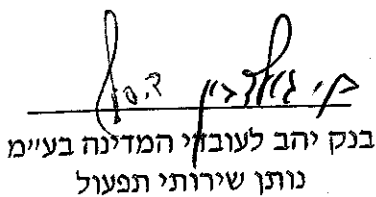 בנק יהב לעובדי המדינה בע"מ
נותן שירותי תפעול